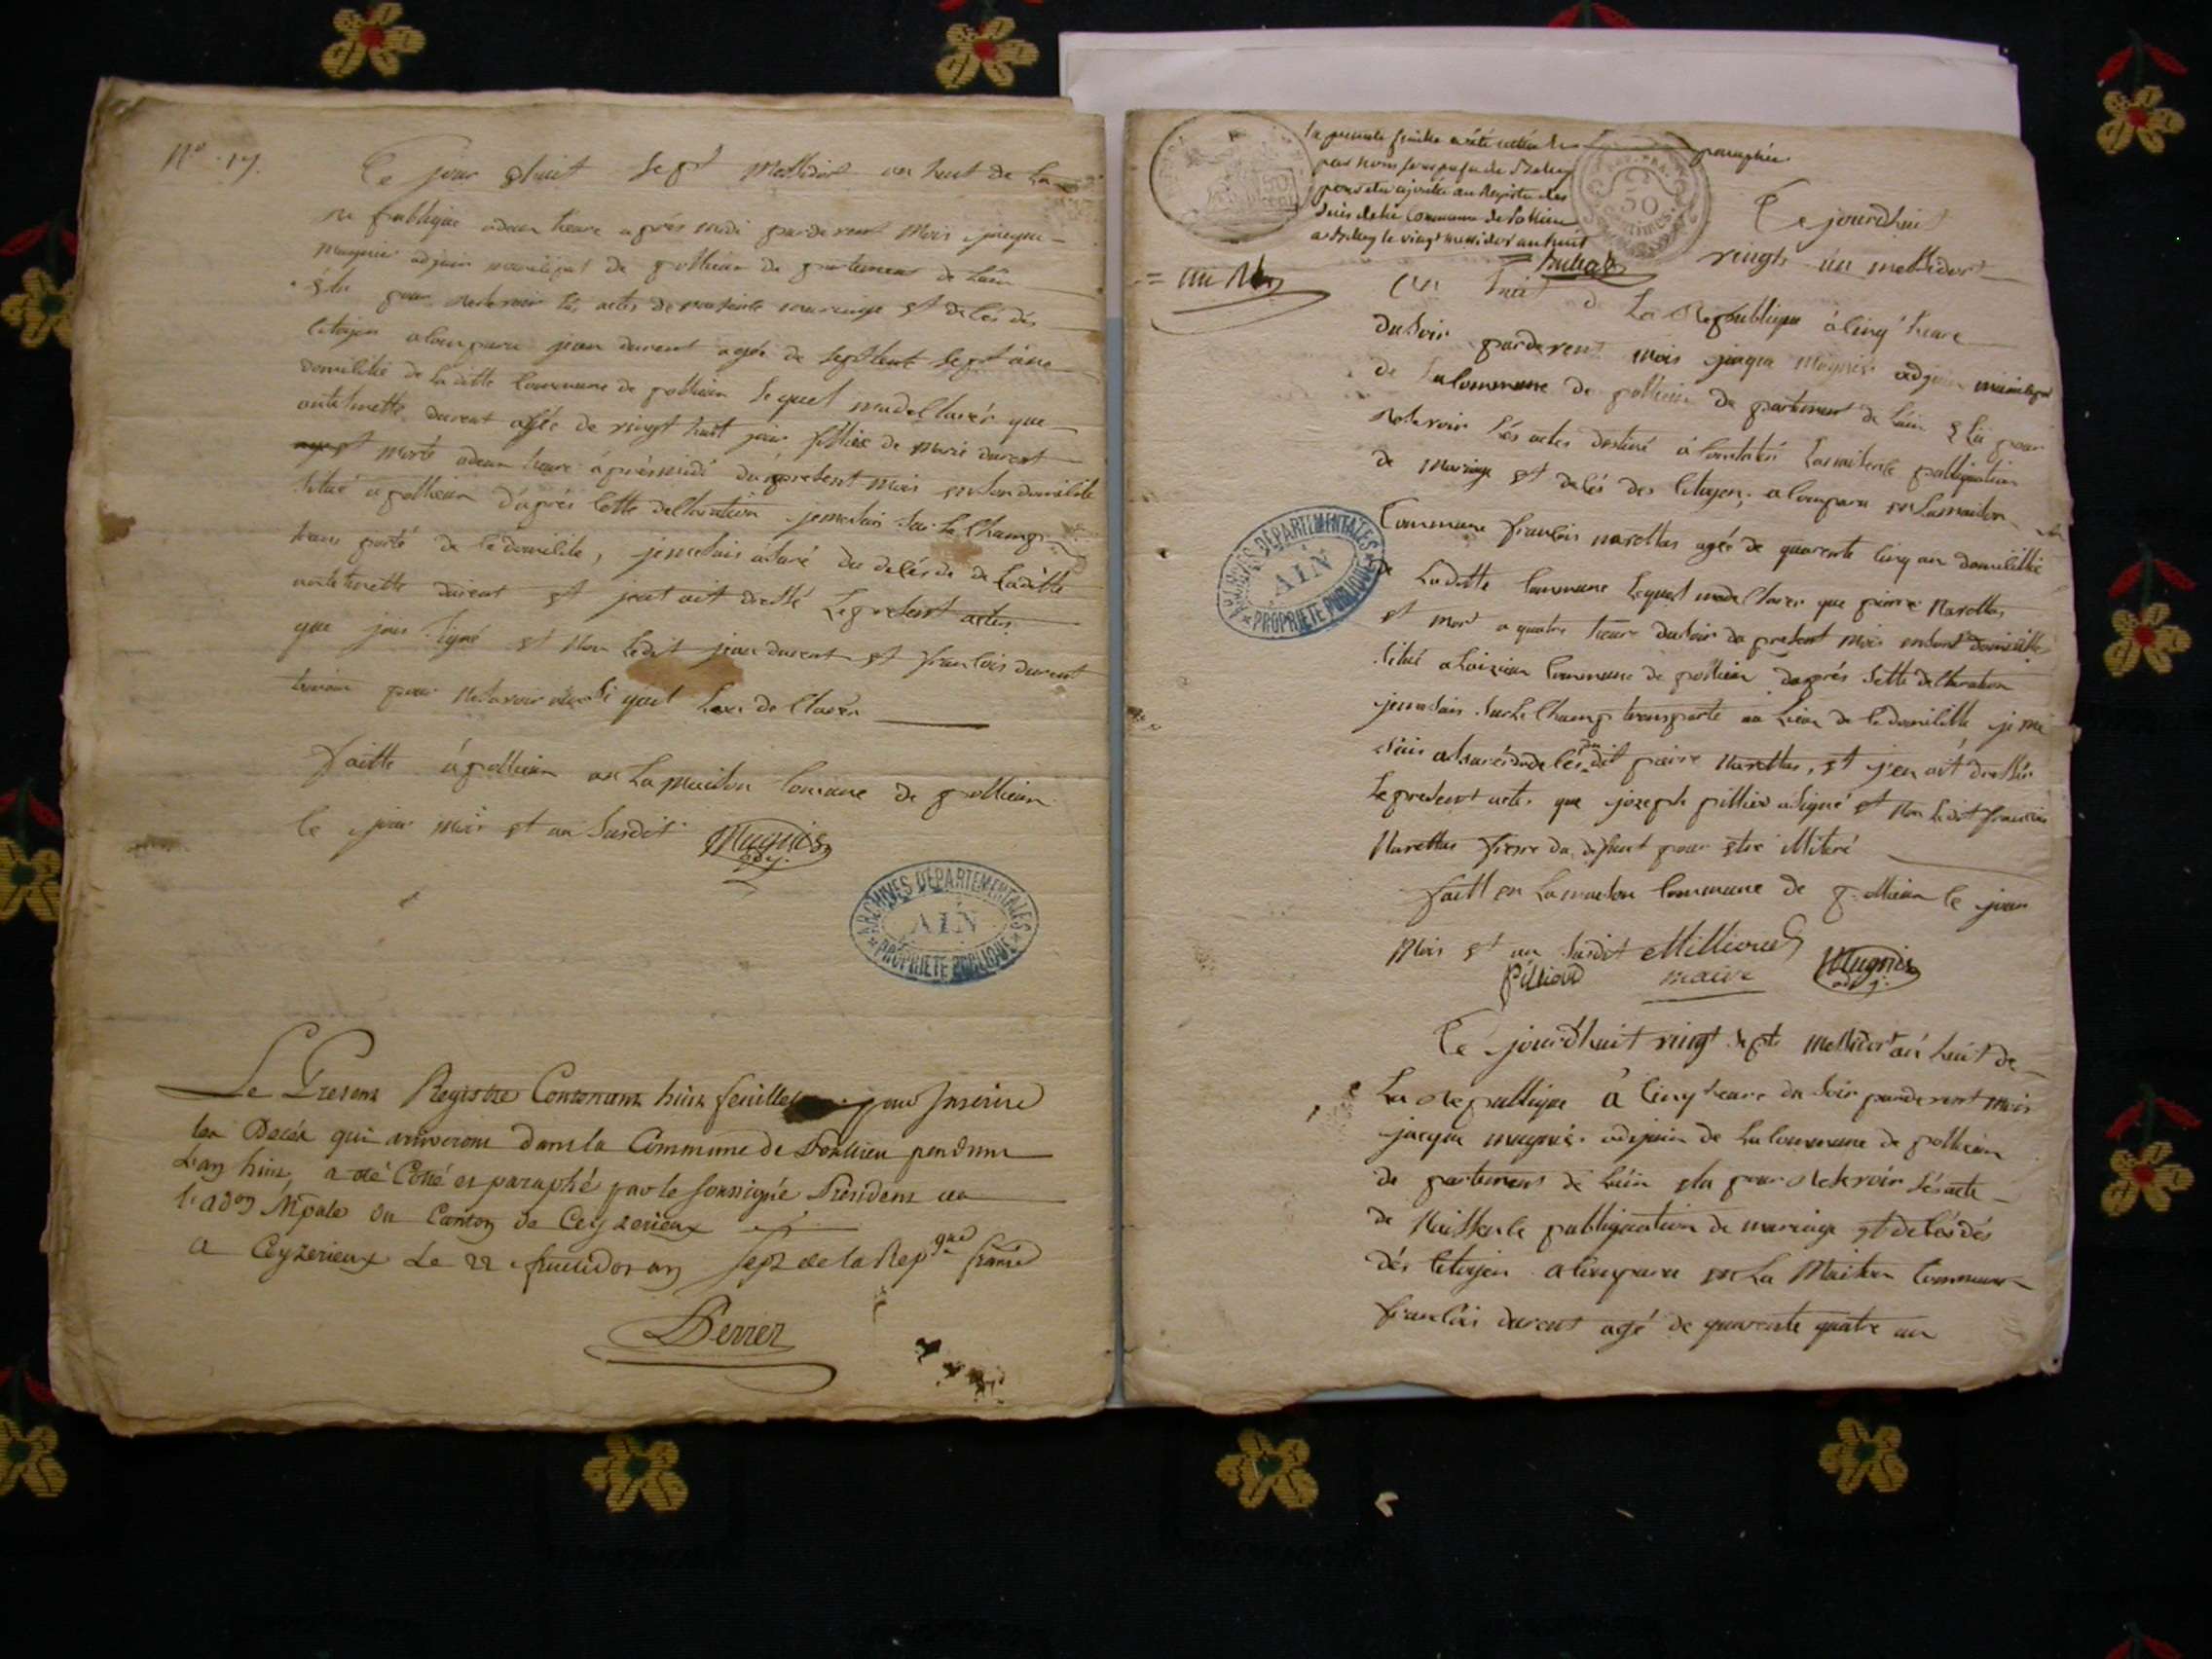 N° 17.
Ce jour dhuit sept Messidor an huit de La
re publique adeux heure aprés midi pardevent Mois jacque
Mugnier adjoin municipal de pollieu de partement de Lain
élu pour recevoir lés actes de naisente mariage et delés dés
Citoyen a Conparu jean durent agée de septente sept ans
domilié de La ditte Commune de pollieu Lequel madellarér que
antelmette durent agée de vingt huit jour fillie de marie durent
et morte adeux heure áprésmidi du present mois en son domilile
situé a pollieu d'aprés cette dellaration jemesuis sur Le Champ
trans porté de le domilile, jemesuis asuré du delés de Laditte
antelmette durent et jent ait dressé Le present actes
que jais signé et Non Ledit jean durent et francois durent
temoin pour Nesavoir
faitte á pollieu en La maison Comune de pollieu
le jour mois et an susdit Mugnier
adj.
ARCHIVES DEPARTEMENTALES
AIN
PROPRIETE PUBLIQUE
Le Present Registre Contenant huit feuillets pour Inscrire
les Décés qui arriveront dans la Commune de Pollieu pendant
L'an huit, a été Cotté et paraphé par le soussigné Président de
l'adon Mpale du Canton de Ceyzerieux
a Ceyzerieux Le 22 fructidor an sept de la Repque francse
Perrer
La presente feuille a été cottée et paraphée
par nous sous prefet de Belley
pour etre ajoutée au Registre des
Décés de la Commune de Pollieu
a Belley le vingt messidor an huit
50
Centimes
Ce jourdhuit
vingts un messidor
an huit de La Republique á Cinq heure
du soir pardevent Mois jacque Mugnier adjoin municipal
de La Commune de pollieu de partement de Lain élu pour
Recevoir lés actes destiné á Constaté Lesnaisente publiqation
de Mariage et delés des Citoyen; a Conparu en Lamaison
Commune francois narettas agée de quarente Cinq an domilillié
de Laditte Commune Lequel madellarer que pierre Narettas
et mort a quatre heure dusoir du present Mois en sont domilille
situé a Commune de pollieu daprés sette dellaration
jemesuis sur Le Champ transporté au Lieu de le domilille, je me
suis assuré du delés du dit pierre Narettas, et jen ait dressér
Le present actes que jozeph pillioud a signé et Non Ledit francois
Narettas frere du defunt pour etre illitéré
faitt en La maison Commune de pollieu le jour
Mois et an susdit Millioud Mugnier
Pillioud maire adj.
ARCHIVES DEPARTEMENTALES
AIN
PROPRIETE PUBLIQUE
Ce jourdhuit vingt septe messidor an huit de
La Republique á Cinq heure du Soir pardevent mois
jacque mugnié adjoin de La Commune de pollieu
de partement de Lain elu pour Recevoir lés acte
de Naissente publiqation de mariage et delés dés
dés Citoyen a Conparu en La Maison Commune
francois durent agé de quarente quatre an